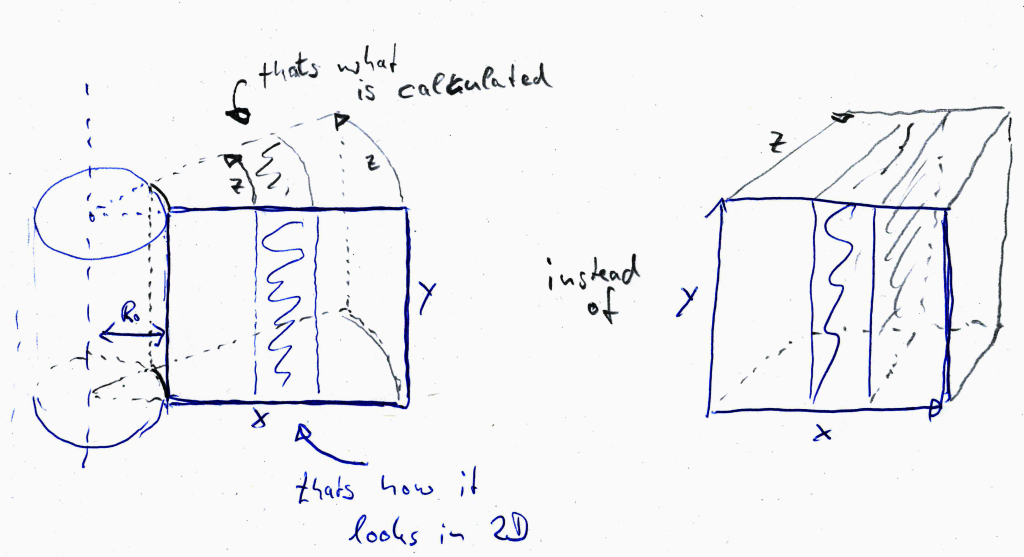 thats what
is calculated
z
z
R₀
Y
X
thats how it
looks in 2D
instead
of
z
Y
X